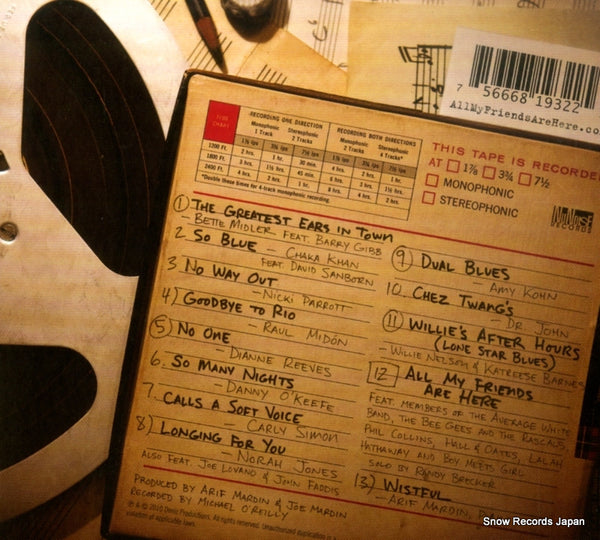 7 56668 19322
AllMyFriendsAreHere.co
TIME CHART
RECORDING ONE DIRECTION
RECORDING BOTH DIRECTIONS
Monophonic 1 Track
Stereophonic 2 Tracks
Monophonic 2 Tracks
Stereophonic 4 Tracks*
1200 Ft.
1800 Ft.
2400 Ft.
*Double these times for 4-track monophonic recording.
THIS TAPE IS RECORDED
AT 1⅞ 3¾ 7½
MONOPHONIC
STEREOPHONIC
NuNoise
RECORDS
1 THE GREATEST EARS IN TOWN
- BETTE MIDLER FEAT. BARRY GIBB
2 SO BLUE - CHAKA KHAN
FEAT. DAVID SANBORN
3. NO WAY OUT
- NICKI PARROTT
4) GOODBYE TO RIO
- RAUL MIDÓN
5 NO ONE
- DIANNE REEVES
6. SO MANY NIGHTS
- DANNY O'KEEFE
7. CALLS A SOFT VOICE
- CARLY SIMON
8) LONGING FOR YOU
- NORAH JONES
ALSO FEAT. JOE LOVANO & JOHN FADDIS
9 DUAL BLUES
- AMY KOHN
10. CHEZ TWANG'S
- DR. JOHN
11 WILLIE'S AFTER HOURS
(LONE STAR BLUES)
- WILLIE NELSON & KATREESE BARNES
12 ALL MY FRIENDS
ARE HERE
FEAT. MEMBERS OF THE AVERAGE WHITE
BAND, THE BEE GEES AND THE RASCALS
PHIL COLLINS, HALL & OATES, LALAH
HATHAWAY AND BOY MEETS GIRL
SOLO BY RANDY BRECKER
13) WISTFUL
- ARIF MARDIN,
PRODUCED BY ARIF MARDIN & JOE MARDIN
RECORDED BY MICHAEL O'REILLY
℗ & © 2010 Denic Productions. All rights reserved. Unauthorized duplication is a
violation of applicable laws.
Snow Records Japan